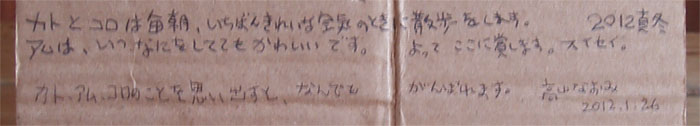 カトとコロは毎朝、いちばんきれいな空気のときに散歩をします。 2012真冬
アムは、いつなにをしててもかわいいです。 よってここに賞します。スイセイ。
カト、アム、コロのことを思い出すと、なんでも がんばれます。 高山なおみ
2012.1.26